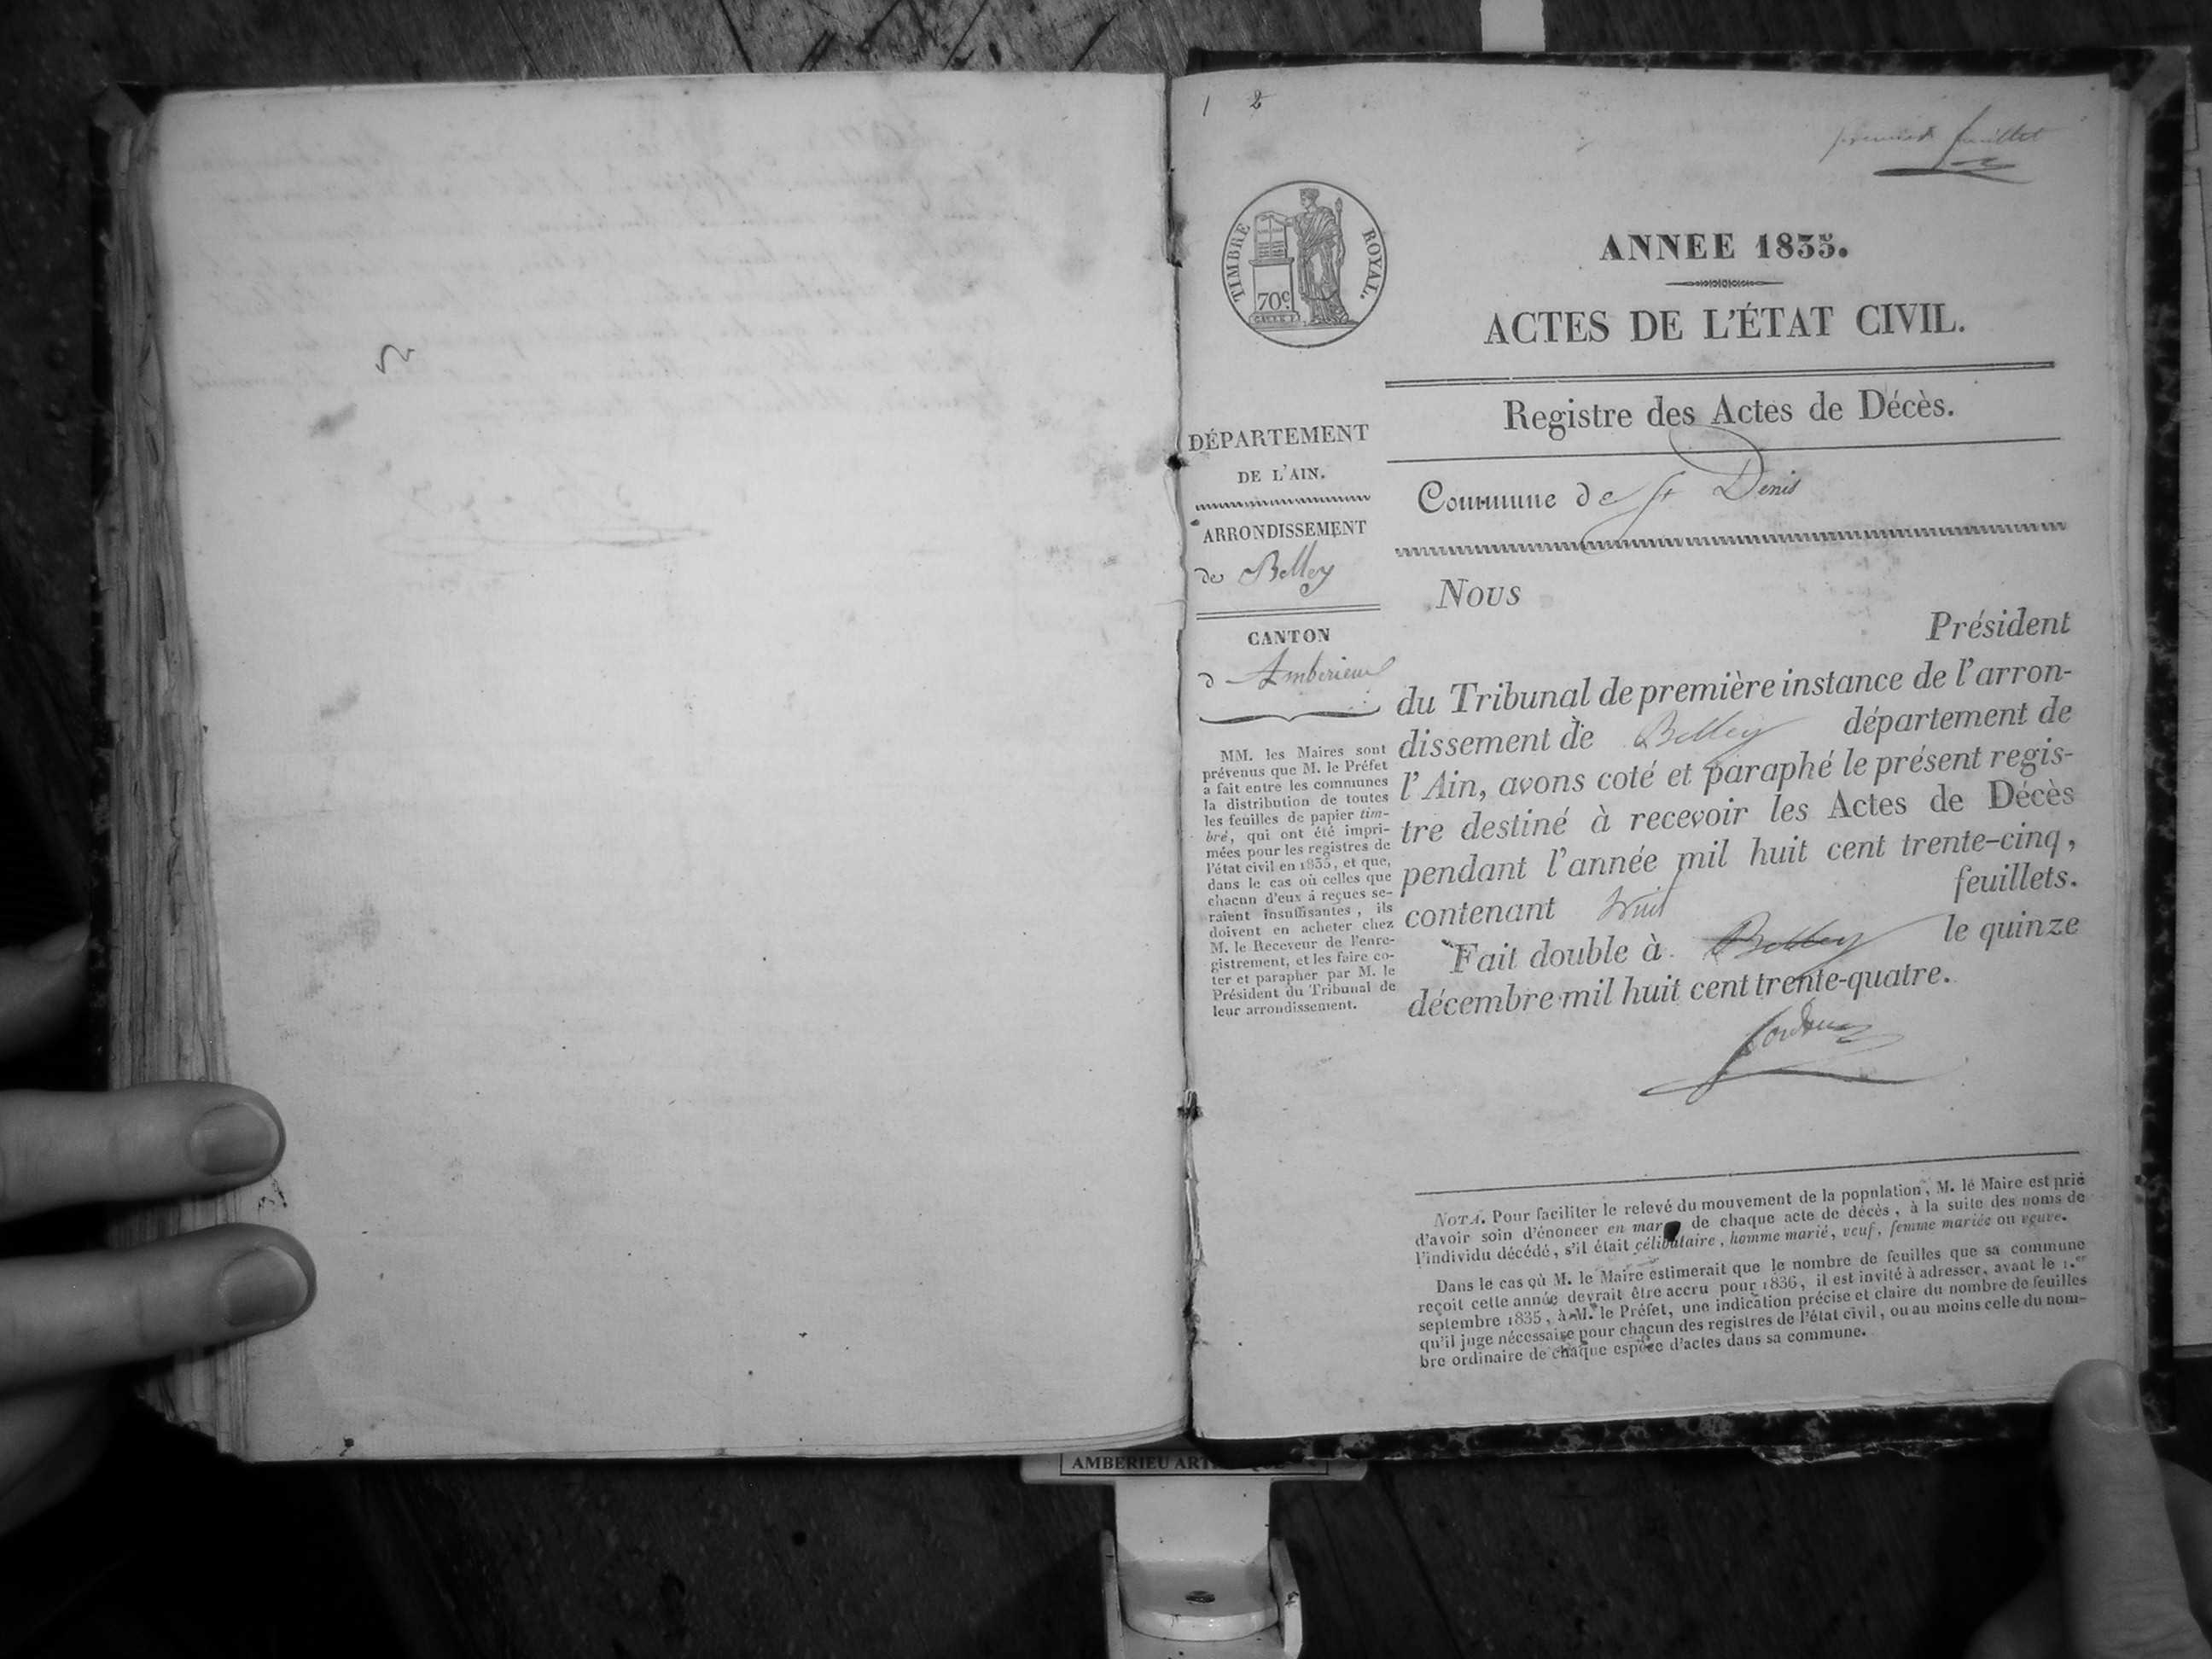 1 2
premier feuillet
TIMBRE ROYAL.
70c
ANNEE 1835.
ACTES DE L'ÉTAT CIVIL.
Registre des Actes de Décès.
Commune de St Denis
DÉPARTEMENT
DE L'AIN.
ARRONDISSEMENT
de Belley
CANTON
d'Amberieux
MM. les Maires sont
prévenus que M. le Préfet
a fait entre les communes
la distribution de toutes
les feuilles de papier tim-
bré, qui ont été impri-
mées pour les registres de
l'état civil en 1835, et que,
dans le cas où celles que
chacun d'eux á reçues se-
raient insuffisantes, ils
doivent en acheter chez
M. le Receveur de l'enre-
gistrement, et les faire co-
ter et parapher par M. le
Président du Tribunal de
leur arrondissement.
Nous
Président
du Tribunal de première instance de l'arron-
dissement de Belley département de
l'Ain, avons coté et paraphé le présent regis-
tre destiné à recevoir les Actes de Décès
pendant l'année mil huit cent trente-cinq,
contenant huit feuillets.
Fait double à Belley le quinze
décembre mil huit cent trente-quatre.
NOTA. Pour faciliter le relevé du mouvement de la population, M. le Maire est prié
d'avoir soin d'énoncer en mar de chaque acte de décès, à la suite des noms de
l'individu décédé, s'il était célibataire, homme marié, veuf, femme mariée ou veuve.
Dans le cas où M. le Maire estimerait que le nombre de feuilles que sa commune
reçoit cette année devrait être accru pour 1836, il est invité à adresser, avant le 1.er
septembre 1835, à M. le Préfet, une indication précise et claire du nombre de feuilles
qu'il juge nécessaire pour chacun des registres de l'état civil, ou au moins celle du nom-
bre ordinaire de chaque espèce d'actes dans sa commune.
AMBERIEU